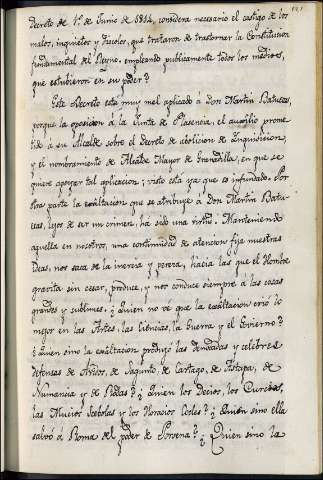 Decreto de 1.º de Junio de 1814, considera necesario el castigo de los
malos, inquietos y díscolos, que trataron de trastornar la Constitucion
fundamental del Reyno, empleando publicamente todos los medios,
que estubieron en su poder?
Este Decreto esta muy mal aplicado á Don Martin Batuecas,
porque la oposicion á la Junta de Plasencia, el auxilio prome-
tido á su Alcalde sobre el decreto de abolicion de Inquisicion,
y el nombramiento de Alcalde Mayor de Granadilla, en que se
quiere apoyar tal aplicacion, visto está ya que es infundado. Por
otra parte la exaltacion que se atribuye á Don Martin Batue-
cas, lejos de ser un crimen, há sido una virtud. Manteniendo
aquella en nosotros, una continuidad de atencion fija nuestras
ideas, nos saca de la inercia y pereza, hácia las que el Hombre
gravita sin cesar, produce, y nos conduce siempre á las cosas
grandes y sublimes. ¿Quien no vé que la exaltacion crió lo
mejor en las Artes, las Ciencias, la Guerra y el Govierno?
¿Quien sino la exaltacion produjo las denodadas y celebres
defensas de Ardos, de Sagunto, de Cartago, de Astapa, de
Numancia y de Rodas? ¿Quien los Decios, los Curcios,
las Mucios Scebolas y los Horacios Cocles? ¿Quién sino ella
salvó á Roma del poder de Porsena? ¿Quien sino la